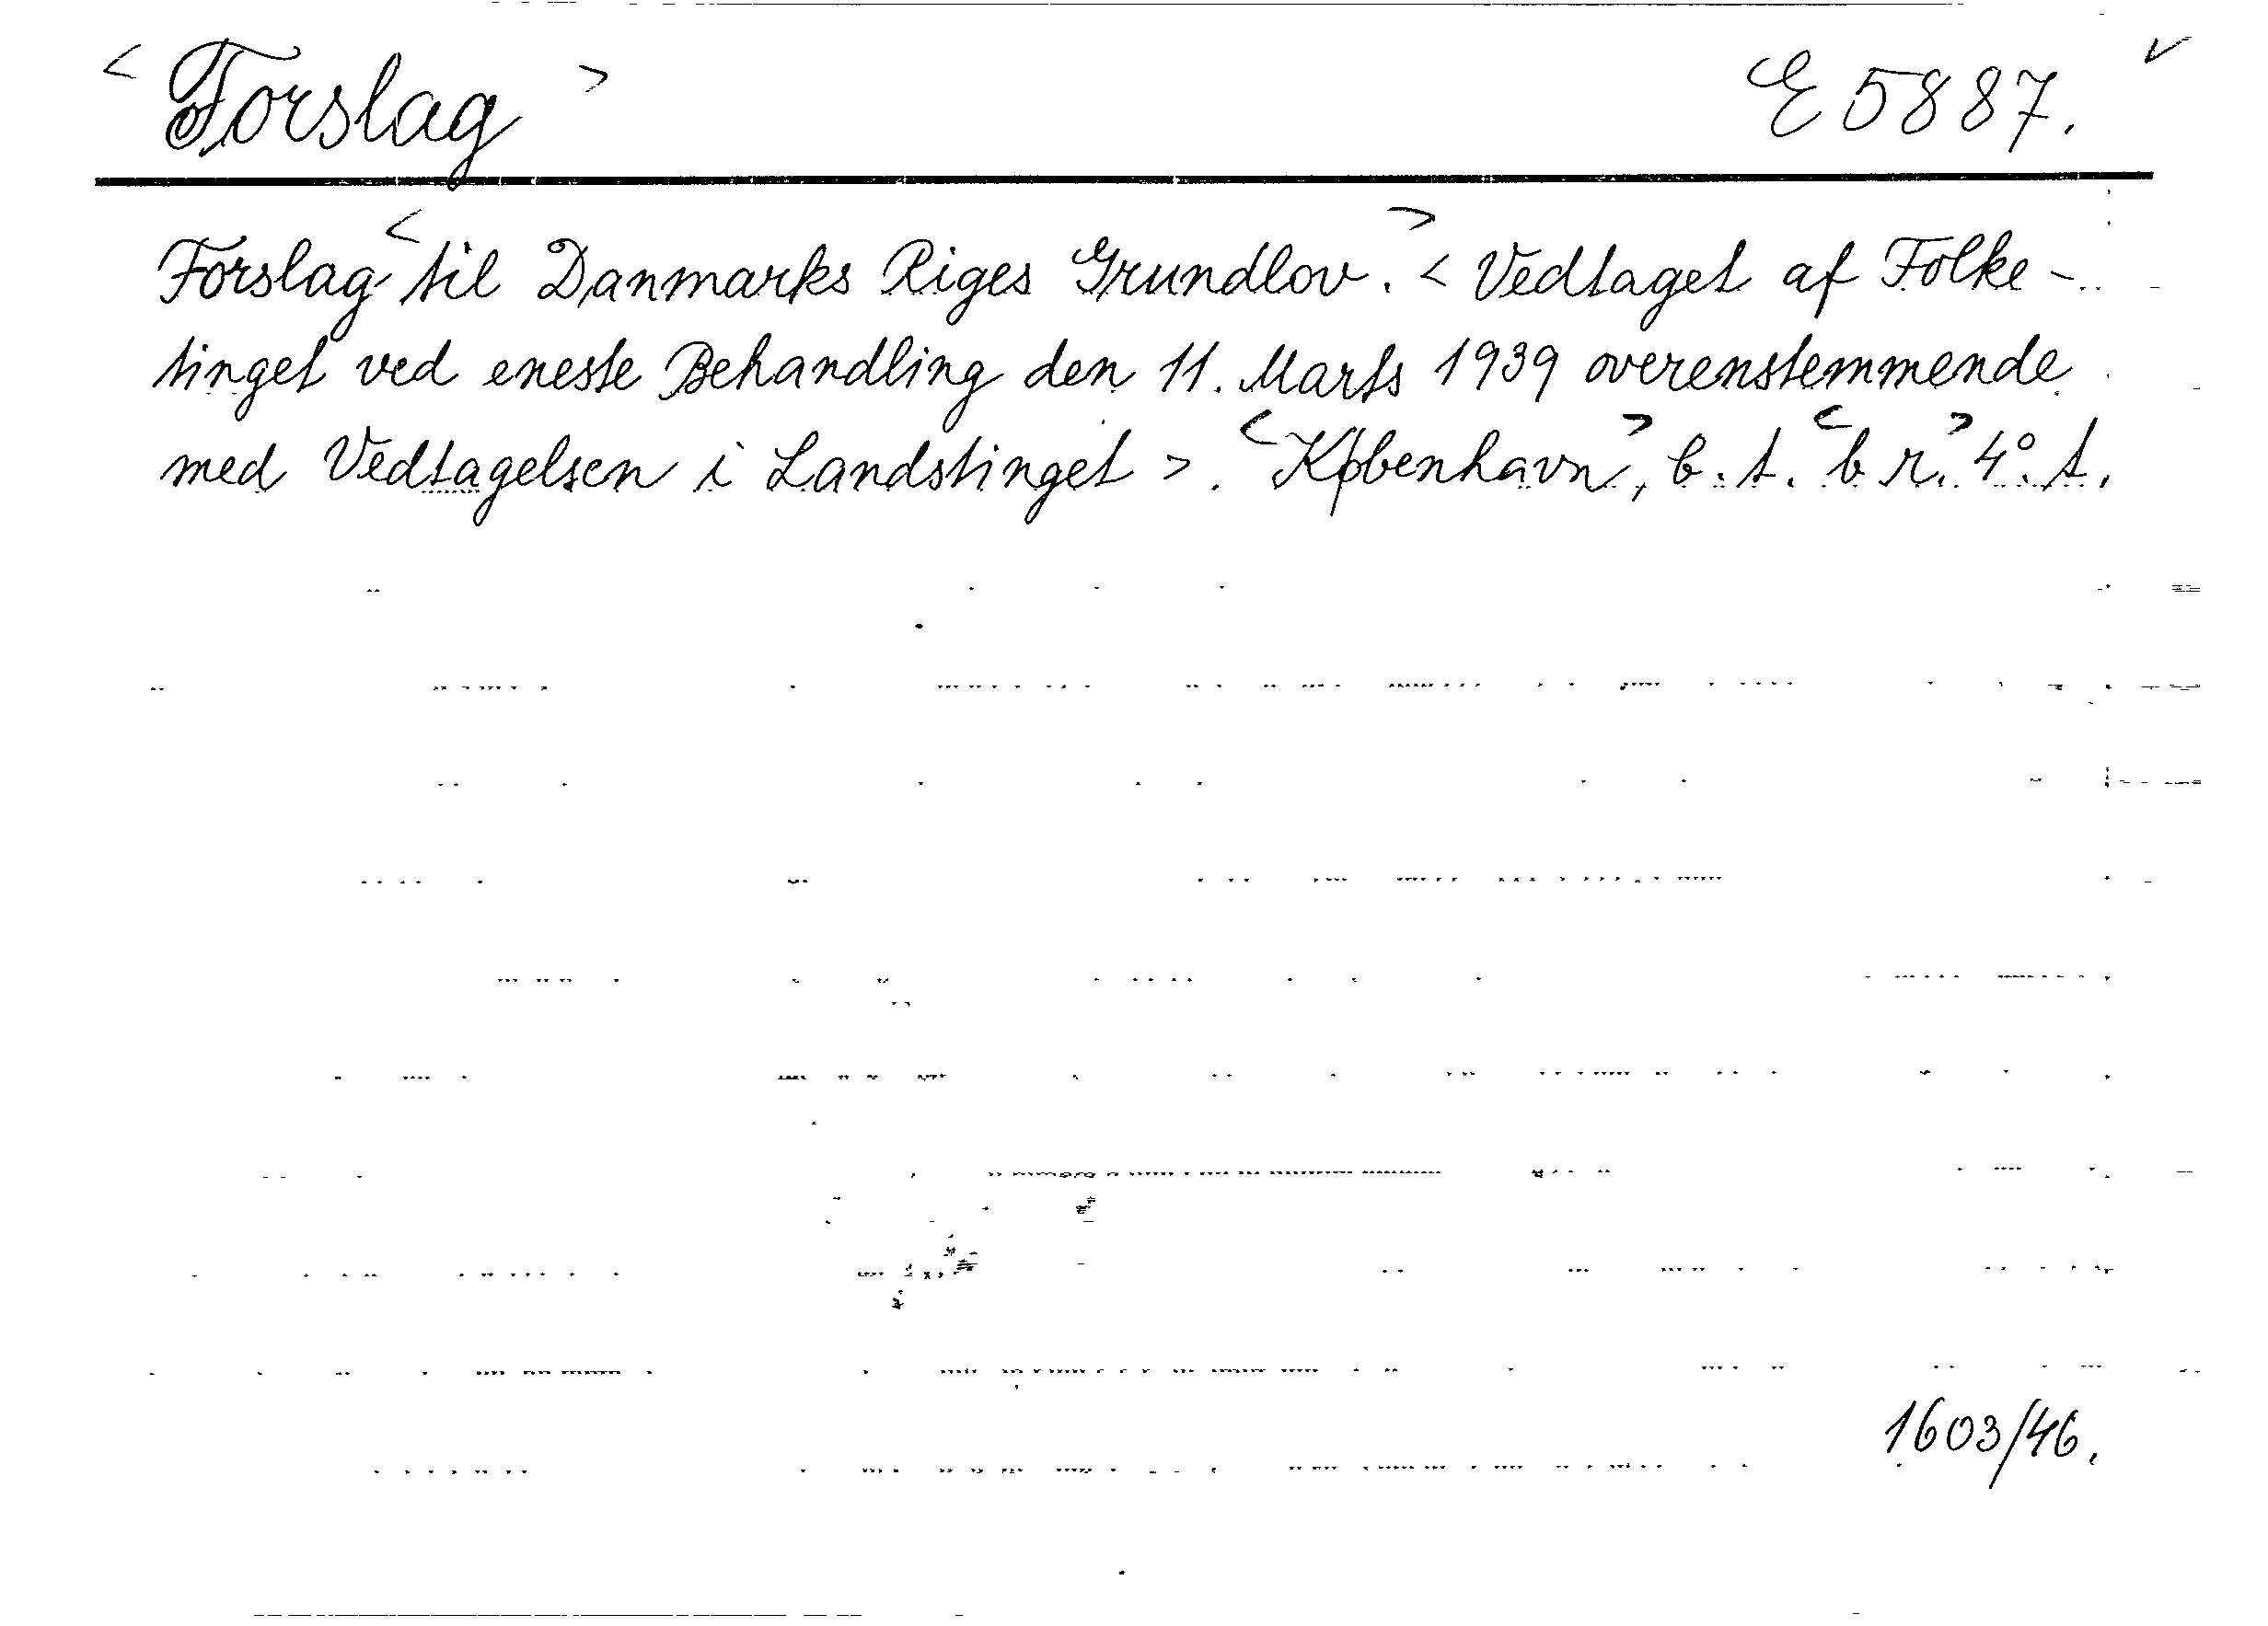 < Forslag > E 5887. ✓
Forslag < til Danmarks Riges Grundlov. > < Vedtaget af Folke-
tinget ved eneste Behandling den 11. Marts 1939 overenstemmende
med Vedtagelsen i Landstinget >. < København >, b. t. < b r. > 4°. t.
1603/46.